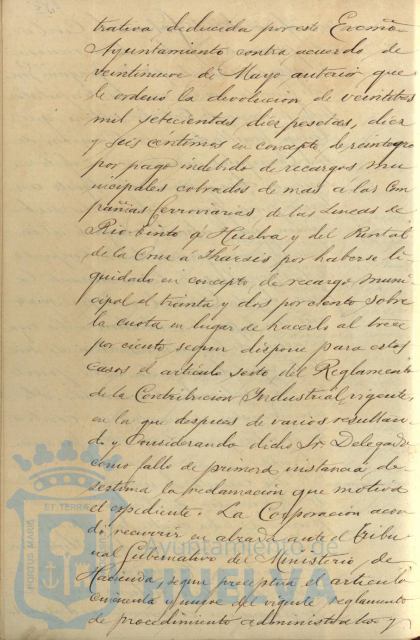 trativa deducida por este Excmo
Ayuntamiento contra acuerdo de
veintinueve de Mayo anterior que
le ordenó la devolucion de veintitres
mil setecientas diez pesetas, diez
y seis céntimos en concepto de reintegro
por pago indebido de recargos mu
nicipales cobrados de mas a las Com
pañias ferroviarias de las Lineas de
Rio-Tinto á Huelva y del Puntal
de la Cruz á Thársis por haberse li
quidado en concepto de recargo muni
cipal el treinta y dos por ciento sobre
la cuota en lugar de hacerlo al trece
por ciento segun dispone para estos
casos el artículo sesto del Reglamento
de la Contribucion Industrial vigente,
en la que despues de varios resultan
do y Considerando dicho Sr Delegado
como fallo de primera instancia de
sestima la reclamación que motiva
el expediente. La Corporación acor
dó recurrir en alzada ante el Tribu
nal Gubernativo del Ministerio de
Hacienda, segun preceptua el artículo
cincuenta y nueve del vigente reglamento
de procedimiento administrativo y
PORTUS MARIS ET TERRAE
Ayuntamiento de
HUELVA